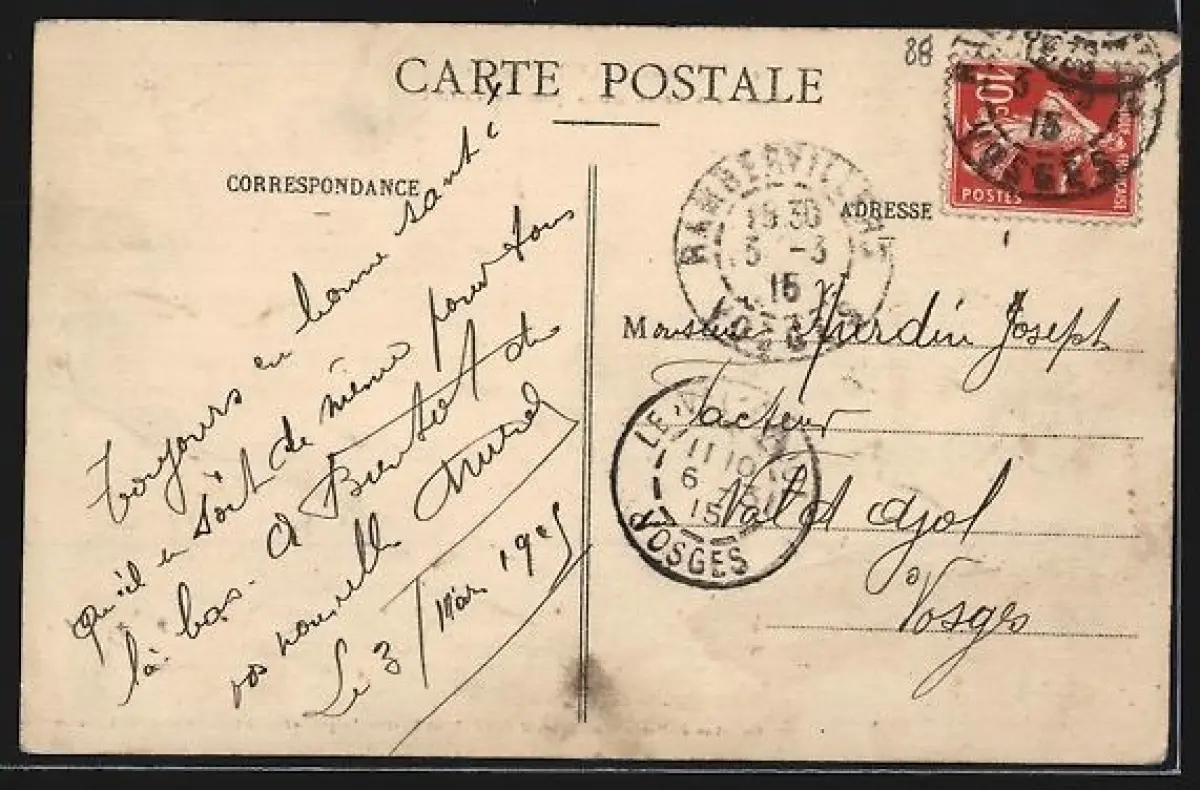 CARTE POSTALE
CORRESPONDANCE
ADRESSE
88
10c
POSTES
15
VOSGES
RAMBERVILLERS
15 30
3 -3
15
VOSGES
LE VAL-D'AJOL
11 10
6 -3
15
VOSGES
Toujours en bonne santé
qu'il en soit de même pour tous
là-bas. A Bientôt de
vos nouvelle
Le 3 Mars 1915
Monsieur Joseph
Facteur
Val d Ajol
Vosges